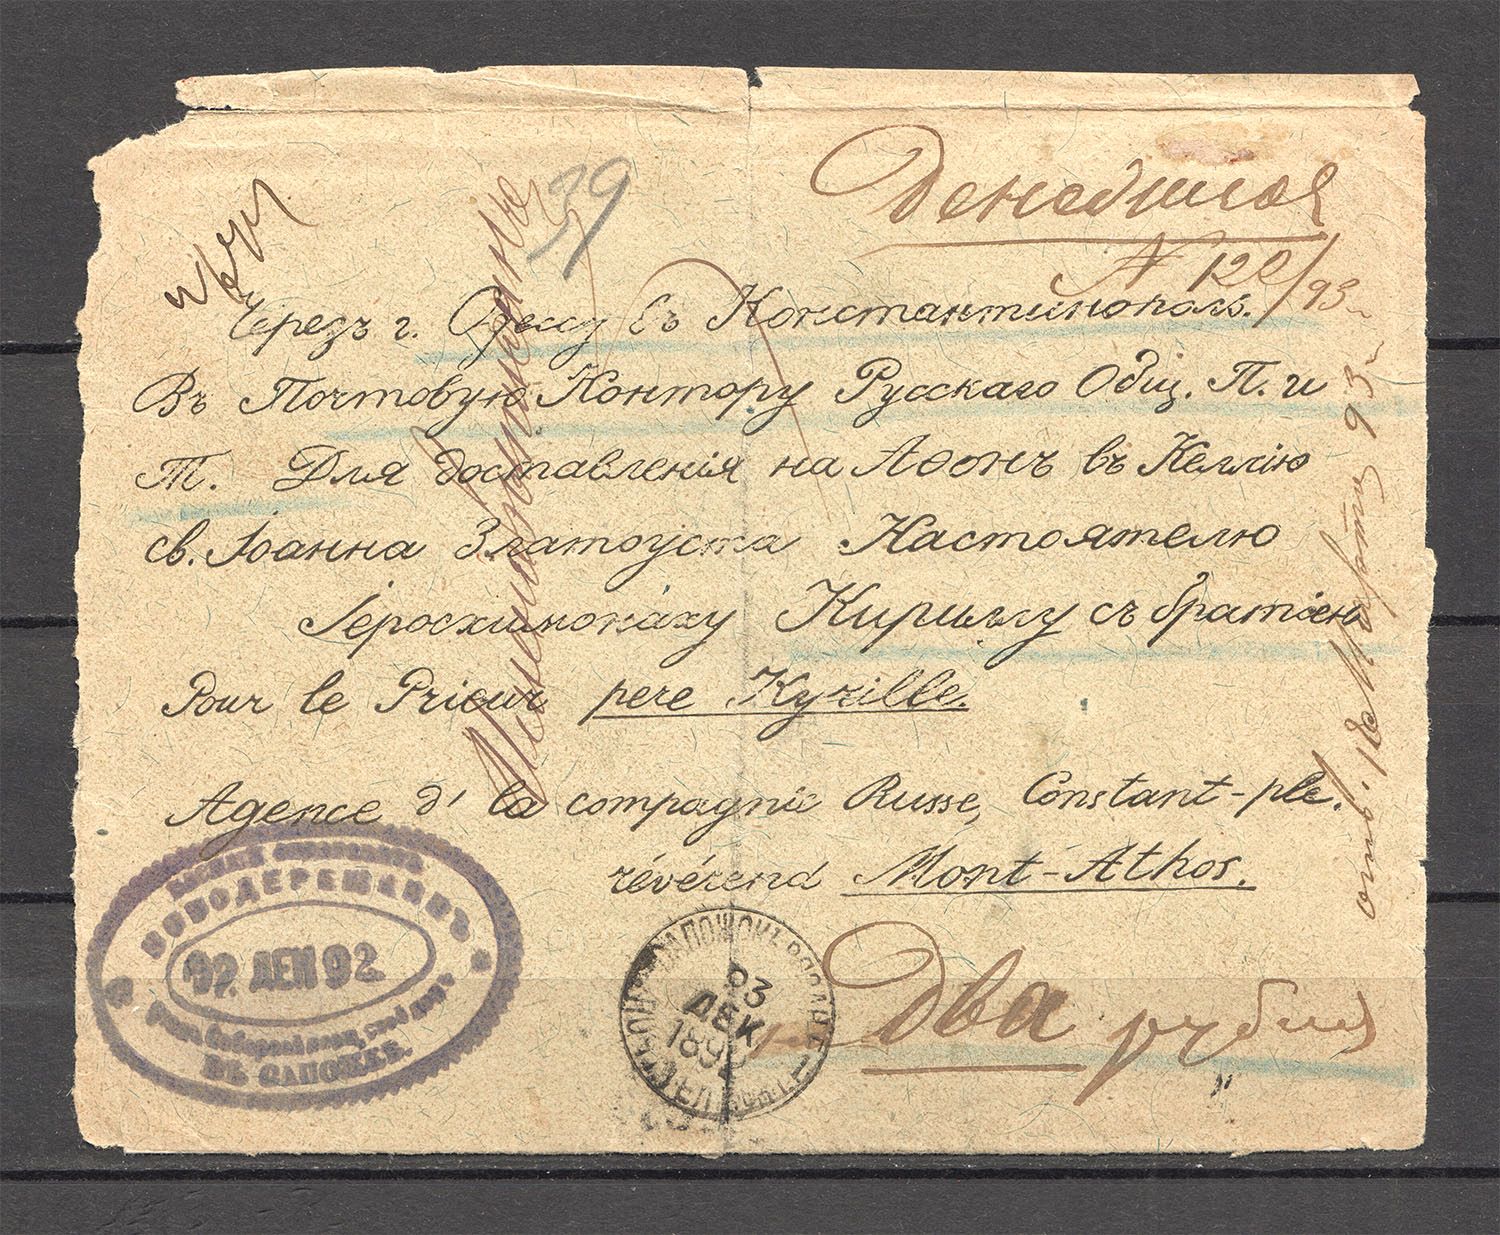 39
Денежное
N 122/93
Черезъ г. Одессу въ Константинополь.
Въ Почтовую Контору Русскаго Общ. П. и
Т. Для доставленія на Аѳонъ въ Келлію
св. Іоанна Златоуста Настоятелю
Іеросхимонаху Кириллу съ братіею
Pour le Prieur pere Kyrille.
Agence d' la compagnie Russe, Constant-ple.
révérend Mont-Athos.
Два рубля
НОВОДЕРЕЖКИНЪ
92. ДЕК 92.
ВЪ САПОЖКѢ.
САПОЖОКЪ
03
ДЕК
189
93